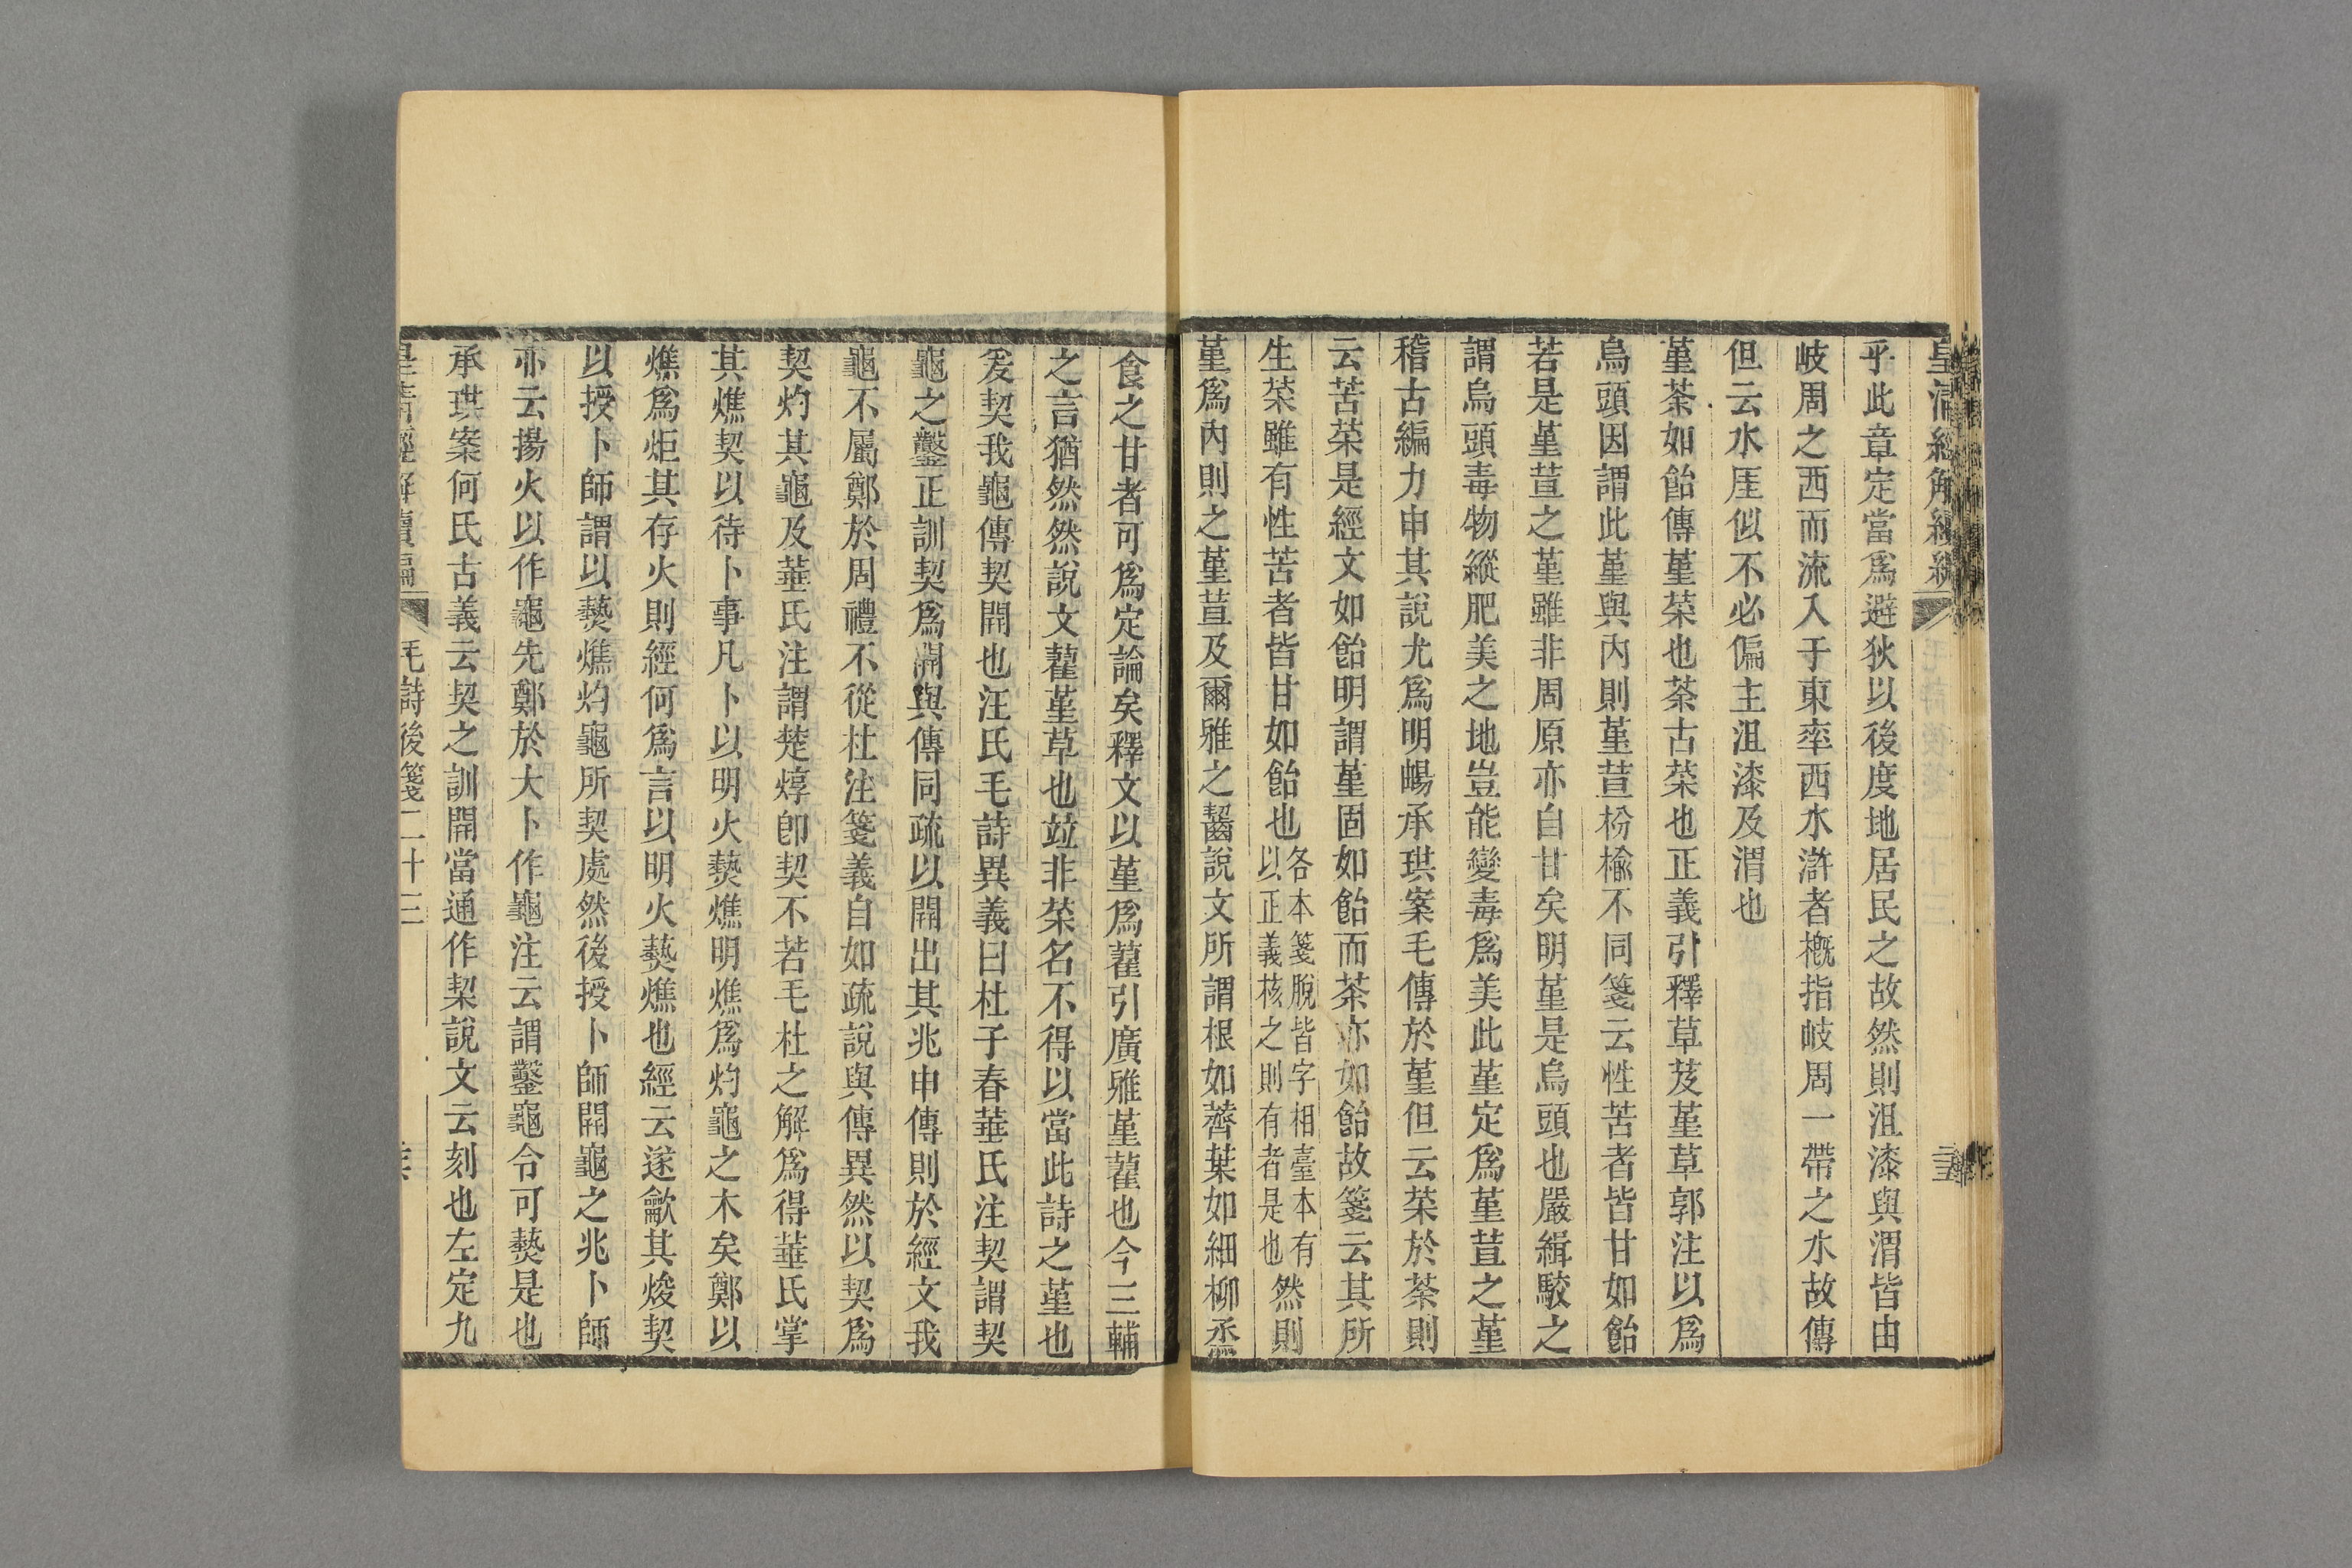 乎此章定當爲避狄以後度地居民之故然則沮漆與渭皆由
岐周之西而流入于東率西水滸者槪指岐周一帶之水故傳
但云水厓似不必偏主沮漆及渭也
堇荼如飴傳堇菜也荼古菜也正義引釋草芨堇草郭注以爲
烏頭因謂此堇與內則堇荁枌榆不同箋云性苦者皆甘如飴
若是堇荁之堇雖非周原亦自甘矣明堇是烏頭也嚴緝駮之
謂烏頭毒物縱肥美之地豈能變毒爲美此堇定爲堇荁之堇
稽古編力申其說尤爲明暢承珙案毛傳於堇但云菜於荼則
云苦菜是經文如飴明謂堇固如飴而荼亦如飴故箋云其所
生菜雖有性苦者皆甘如飴也各本箋脫皆字相臺本有以正義核之則有者是也然則
堇爲內則之堇荁及爾雅之齧說文所謂根如薺葉如細柳烝
食之甘者可爲定論矣釋文以堇爲藋引廣雅堇藋也今三輔
之言猶然然說文藋堇草也竝非菜名不得以當此詩之堇也
爰契我龜傳契開也汪氏毛詩異義曰杜子春菙氏注契謂契
龜之鑿正訓契爲開與傳同疏以開出其兆申傳則於經文我
龜不屬鄭於周禮不從杜注箋義自如疏說與傳異然以契爲
契灼其龜及菙氏注謂楚焞卽契不若毛杜之解爲得菙氏掌
其燋契以待卜事凡卜以明火爇燋明燋爲灼龜之木矣鄭以
燋爲炬其存火則經何爲言以明火爇燋也經云遂龡其焌契
以授卜師謂以爇燋灼龜所契處然後授卜師開龜之兆卜師
亦云揚火以作龜先鄭於大卜作龜注云謂鑿龜令可爇是也
承珙案何氏古義云契之訓開當通作栔說文云刻也左定九
毛詩後箋二十三